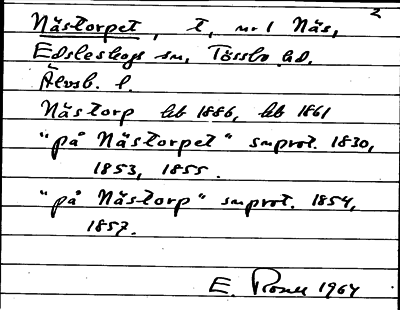 2
Nästorpet, t, nr 1 Näs,
Edsleskogs sn, Tössbo hd.
Älvsb. l.
Nästorp hb 1886, hb 1861
"på Nästorpet" smprot. 1830,
1853, 1855.
"på Nästorp" smprot. 1854,
1857.
E. 1964